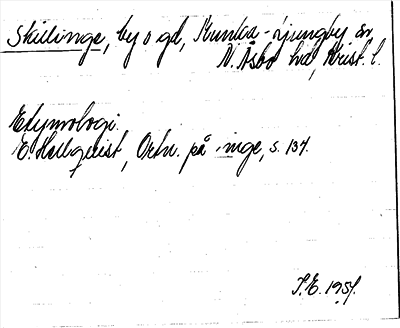 Skillinge, by o gd, Munka-Ljungby sn,
N. Åsbo hd, Krist. l.
Etymologi.
E. Hellquist, Ortn. på -inge, s. 134.
S.E. 1951.